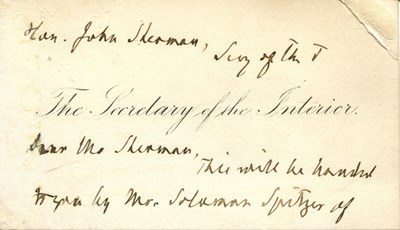 Hon. John Sherman,
Secy of the T
The Secretary of the Interior.
Dear Mr Sherman,
This will be handed
to you by Mr. Solomon Spitzer of